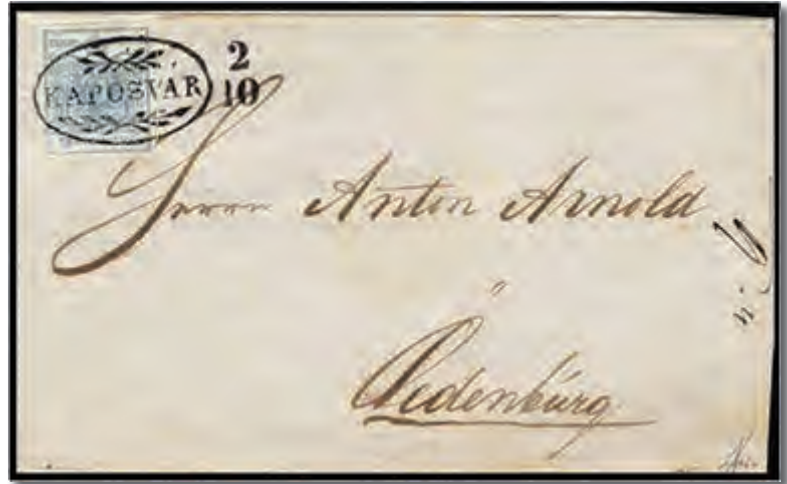 KAPOSVÁR 2
10
Herrn Anton Arnold
Oedenburg